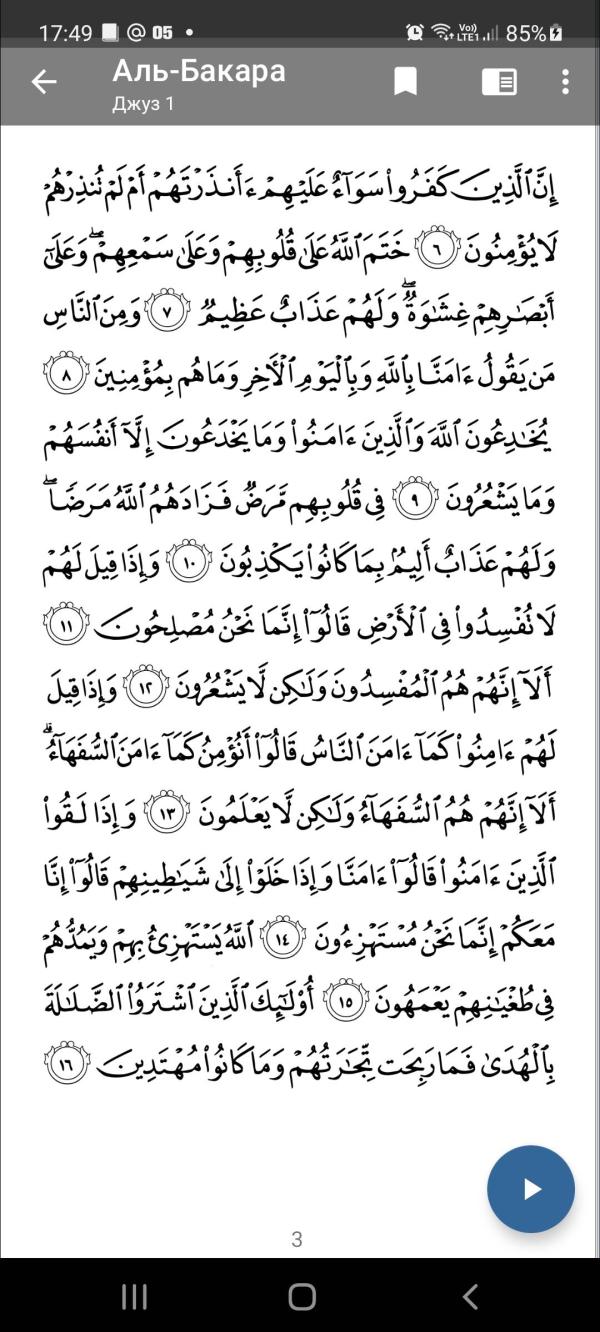 17:49 @ 05 •
Vo)) LTE1 85%
Аль-Бакара
Джуз 1
إِنَّ ٱلَّذِينَ كَفَرُوا۟ سَوَآءٌ عَلَيْهِمْ ءَأَنذَرْتَهُمْ أَمْ لَمْ تُنذِرْهُمْ
لَا يُؤْمِنُونَ ٦ خَتَمَ ٱللَّهُ عَلَىٰ قُلُوبِهِمْ وَعَلَىٰ سَمْعِهِمْ ۖ وَعَلَىٰٓ
أَبْصَـٰرِهِمْ غِشَـٰوَةٌ ۖ وَلَهُمْ عَذَابٌ عَظِيمٌ ٧ وَمِنَ ٱلنَّاسِ
مَن يَقُولُ ءَامَنَّا بِٱللَّهِ وَبِٱلْيَوْمِ ٱلْـَٔاخِرِ وَمَا هُم بِمُؤْمِنِينَ ٨
يُخَـٰدِعُونَ ٱللَّهَ وَٱلَّذِينَ ءَامَنُوا۟ وَمَا يَخْدَعُونَ إِلَّآ أَنفُسَهُمْ
وَمَا يَشْعُرُونَ ٩ فِى قُلُوبِهِم مَّرَضٌ فَزَادَهُمُ ٱللَّهُ مَرَضًا ۖ
وَلَهُمْ عَذَابٌ أَلِيمٌۢ بِمَا كَانُوا۟ يَكْذِبُونَ ١٠ وَإِذَا قِيلَ لَهُمْ
لَا تُفْسِدُوا۟ فِى ٱلْأَرْضِ قَالُوٓا۟ إِنَّمَا نَحْنُ مُصْلِحُونَ ١١
أَلَآ إِنَّهُمْ هُمُ ٱلْمُفْسِدُونَ وَلَـٰكِن لَّا يَشْعُرُونَ ١٢ وَإِذَا قِيلَ
لَهُمْ ءَامِنُوا۟ كَمَآ ءَامَنَ ٱلنَّاسُ قَالُوٓا۟ أَنُؤْمِنُ كَمَآ ءَامَنَ ٱلسُّفَهَآءُ ۗ
أَلَآ إِنَّهُمْ هُمُ ٱلسُّفَهَآءُ وَلَـٰكِن لَّا يَعْلَمُونَ ١٣ وَإِذَا لَقُوا۟
ٱلَّذِينَ ءَامَنُوا۟ قَالُوٓا۟ ءَامَنَّا وَإِذَا خَلَوْا۟ إِلَىٰ شَيَـٰطِينِهِمْ قَالُوٓا۟ إِنَّا
مَعَكُمْ إِنَّمَا نَحْنُ مُسْتَهْزِءُونَ ١٤ ٱللَّهُ يَسْتَهْزِئُ بِهِمْ وَيَمُدُّهُمْ
فِى طُغْيَـٰنِهِمْ يَعْمَهُونَ ١٥ أُو۟لَـٰٓئِكَ ٱلَّذِينَ ٱشْتَرَوُا۟ ٱلضَّلَـٰلَةَ
بِٱلْهُدَىٰ فَمَا رَبِحَت تِّجَـٰرَتُهُمْ وَمَا كَانُوا۟ مُهْتَدِينَ ١٦
3